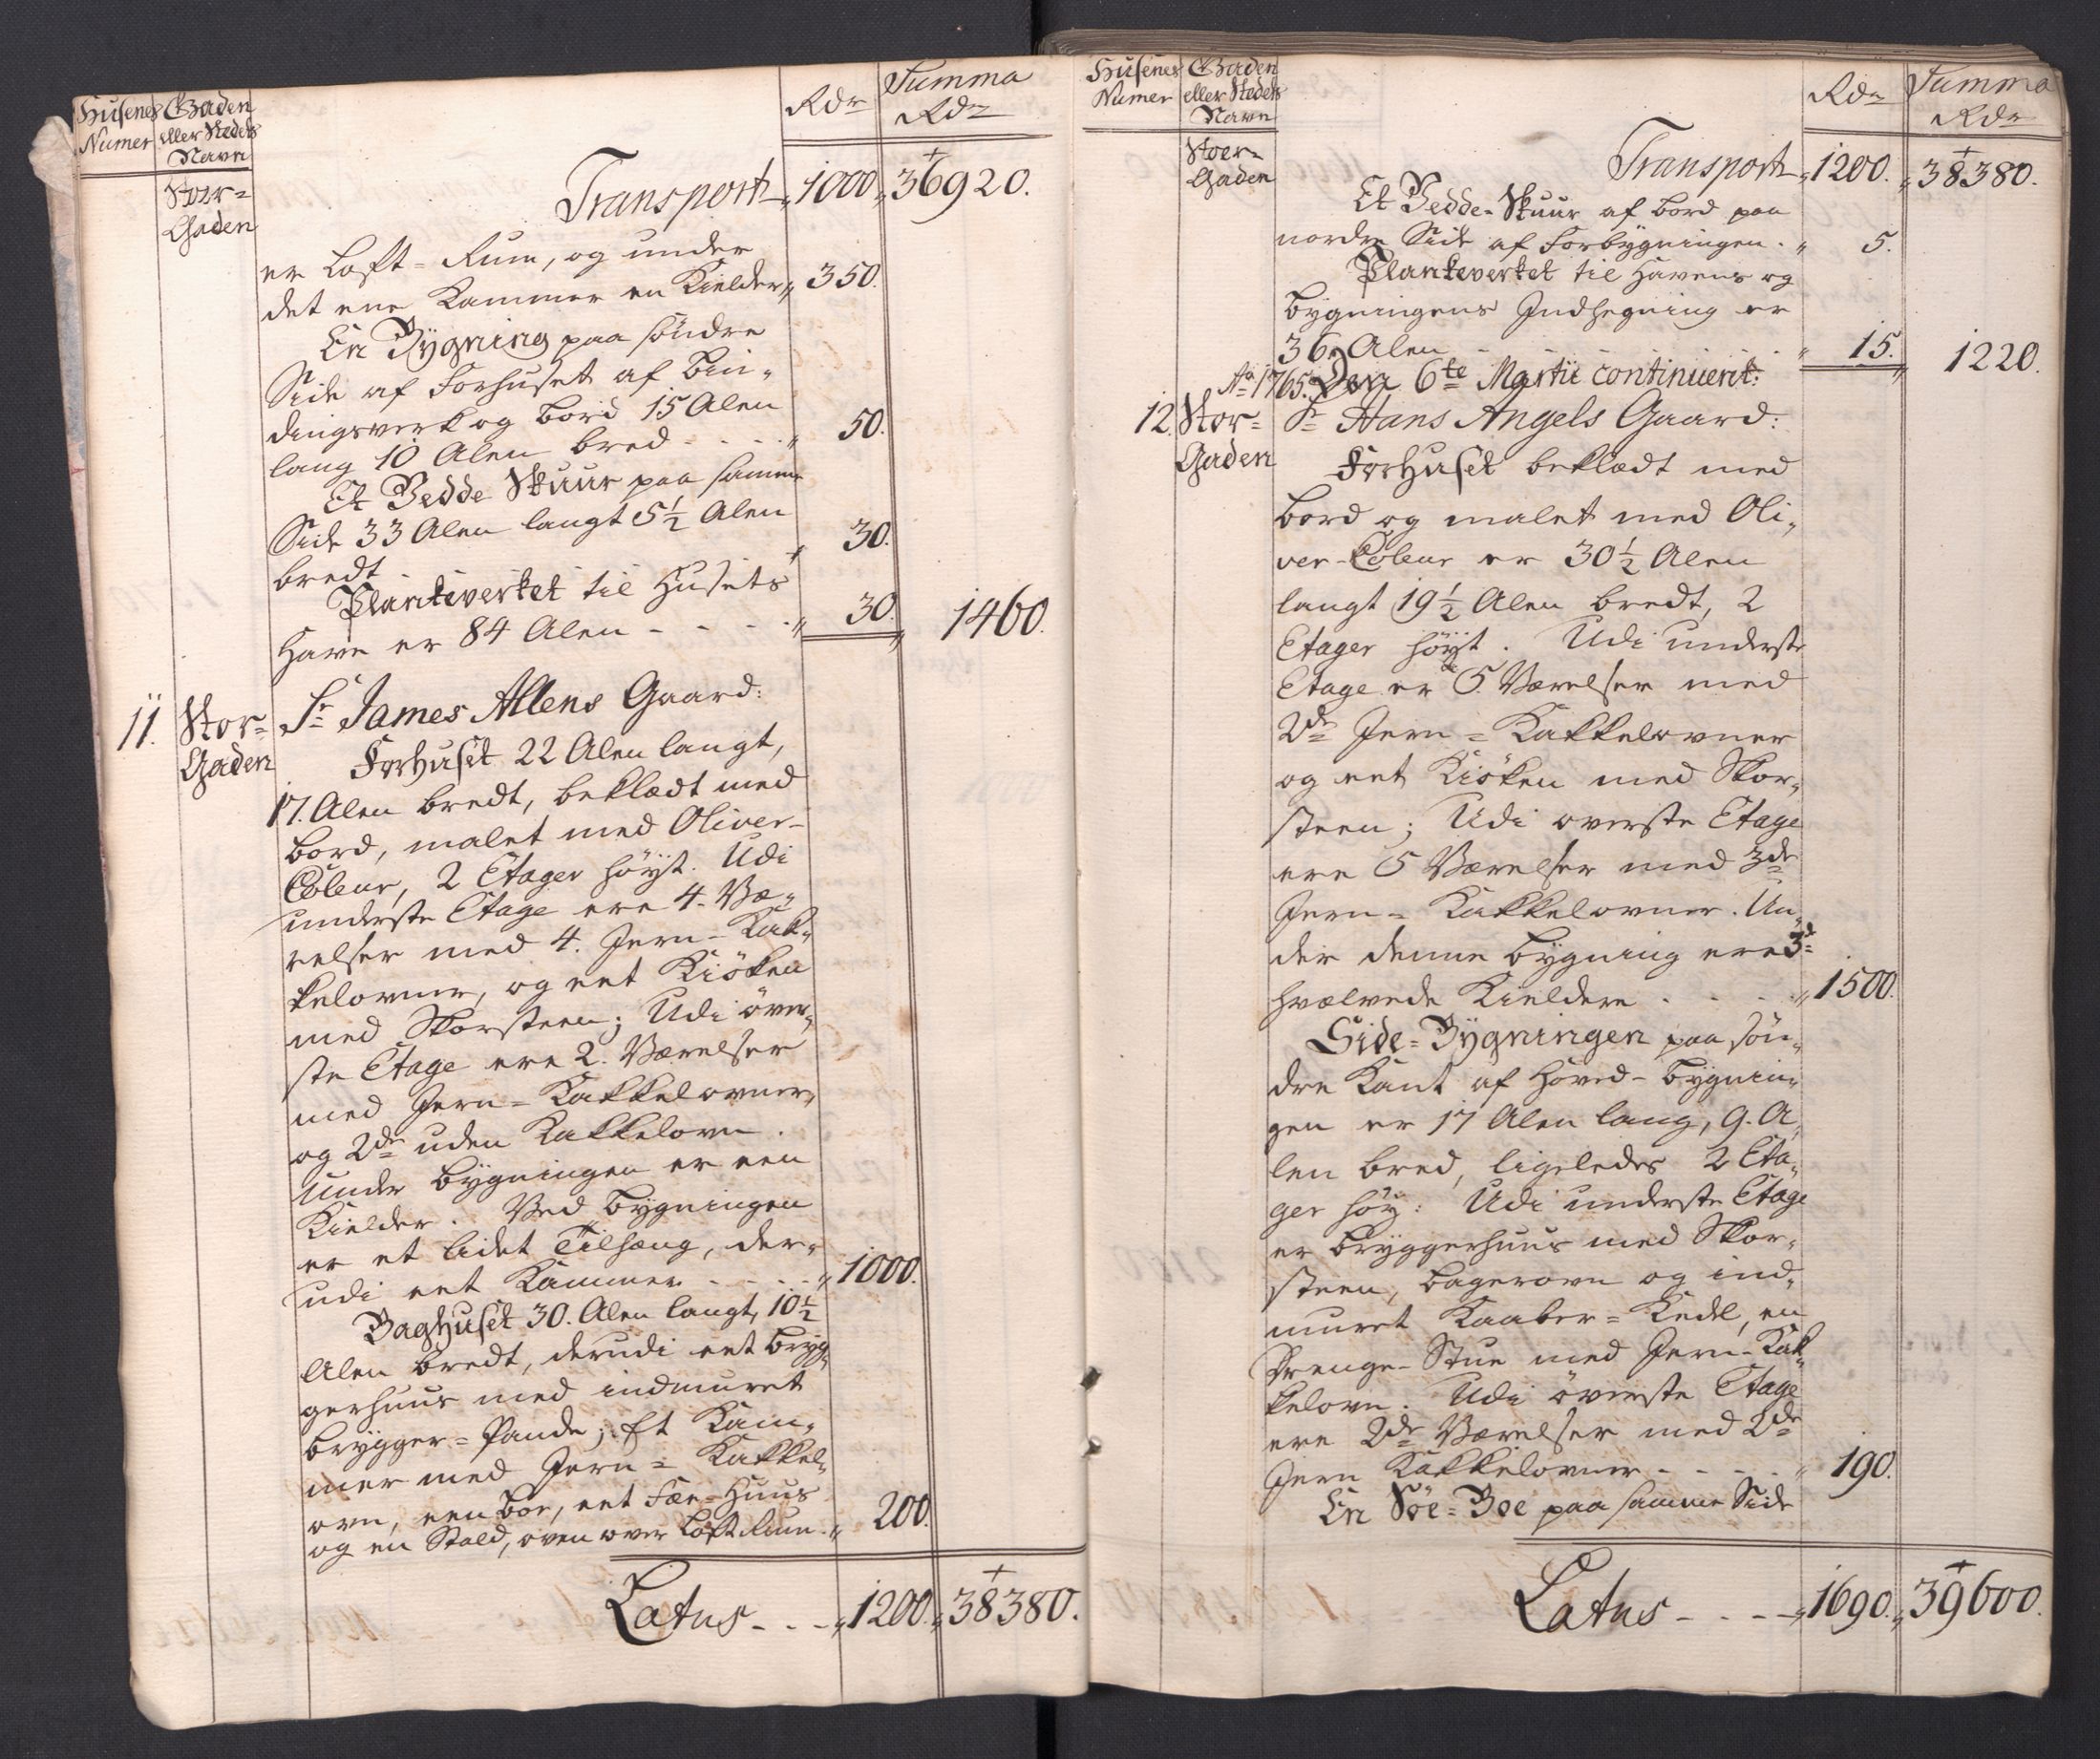 Husenes Numer
Gaden eller Stedets Navn
Rdr
Summa Rdr
Stoer-
Gaden
Transport „ 1000 „ 36920.
er Loft-Rum, og under
det ene Kammer en Kielder „ 350.
En Bÿgning paa söndre
Side af Forhuset af Bin-
dingsverk og bord 15 Alen
lang 10 Alen bred - - - - „ 50.
Et Vedde Skuur paa samme
Side 33 Alen langt 5½ Alen
bredt - - - - „ 30.
Plankeverket til Husets
Have er 84 Alen - - - - „ 30. „ 1460.
11. Stor-
Gaden
Sr James Allens Gaard:
Forhuset 22 Alen langt,
17. Alen bredt, beklædt med
bord, malet med Oliver-
Coleur, 2 Etager höÿt. Udi
underste Etage ere 4. Væ-
relser med 4. Jern-Kak-
kelovner, og eet Kiöken
med Skorsteen; Udi över-
ste Etage ere 2. Værelser
med Jern-Kakkelovner,
og 2de uden Kakkelovn.
Under bÿgningen er een
Kielder. Ved bÿgningen
er et lidet Tilhæng, der-
udi eet Kammer - - - - „ 1000.
Baghuset 30. Alen langt, 10½
Alen bredt, derudi eet brÿg-
gerhuus med indmuret
brÿgger-Pande; Et Kam-
mer med Jern-Kakkel-
ovn, een boe, eet Fæe-Huus
og en Stald, oven over Loft Rum. „ 200.
Latus - - - „ 1200. „ 38380.
Husenes Numer
Gaden eller Stedets Navn
Rdr
Summa Rdr
Stoer-
Gaden
Transport „ 1200. „ 38380.
Et Vedde-Skuur af bord paa
nordre Side af Forbÿgningen. „ 5.
Plankeverket til Havens og
bÿgningens Indhegning er
36. Alen - - - - „ 15. „ 1220.
Ao 1765. Den 6te Martii continuerit:
12. Stor-
Gaden
Sr Hans Angels Gaard:
Forhuset beklædt med
bord og malet med Oli-
ver-Coleur er 30½ Alen
langt 19½ Alen bredt, 2
Etager höÿt. Udi underste
Etage er 5. Værelser med
2de Jern-Kakkelovner
og eet Kiöken med Skor-
steen; Udi overste Etage
ere 5 Værelser med 3de
Jern-Kakkelovner. Un-
der denne bÿgning ere 3de
hvælvede Kieldere - - - „ 1500.
Side-Bÿgningen paa sön-
dre Kant af Hoved-bÿgnin-
gen er 17 Alen lang, 9. A-
len bred, ligeledes 2 Eta-
ger höÿ: Udi underste Etage
er brÿggerhuus med Skor-
steen, bagerovn og ind-
muret Kaaber-Kedel, en
Drenge-Stue med Jern-Kak-
kelovn. Udi överste Etage
ere 2de Værelser med 2de
Jern Kakkelovner - - - - „ 190.
En Söe-Boe paa samme Side
Latus - - - - „ 1690. „ 39600.